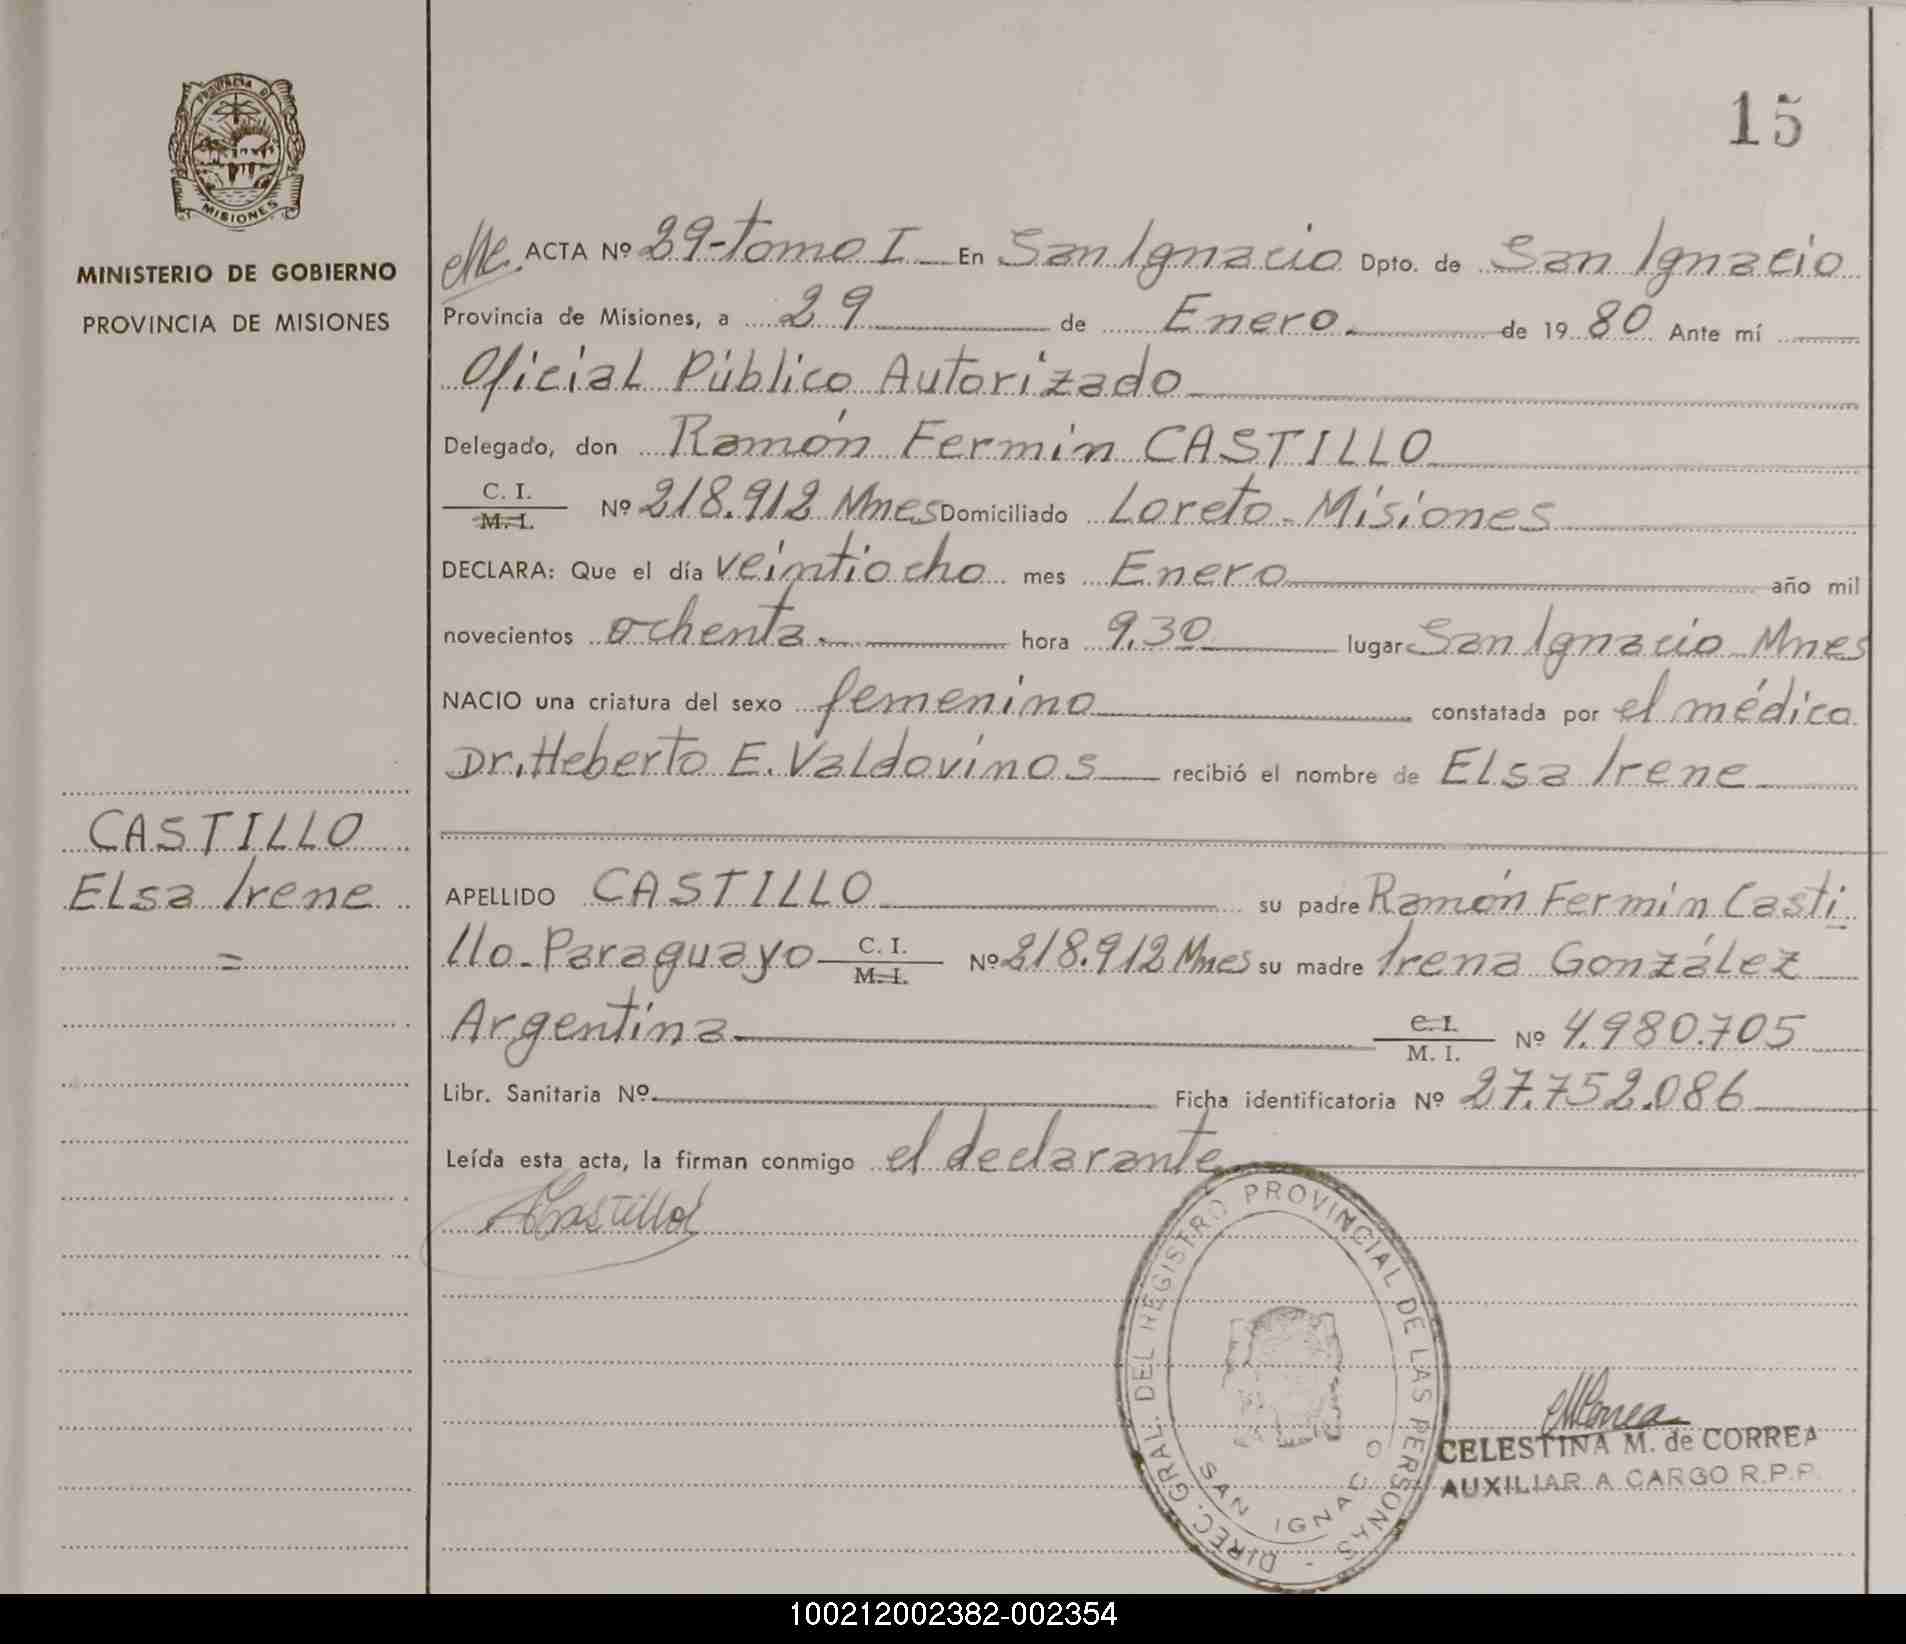 PROVINCIA D
MISIONES
MINISTERIO DE GOBIERNO
PROVINCIA DE MISIONES
CASTILLO
Elsa Irene
=
15
ACTA Nº 29-tomo I En San Ignacio Dpto. de San Ignacio
Provincia de Misiones, a 29 de Enero. de 19 80 Ante mí
Oficial Público Autorizado
Delegado, don Ramón Fermin CASTILLO
C. I.
M. I. Nº 218.912 Mnes Domiciliado Loreto - Misiones
DECLARA: Que el día veintiocho mes Enero año mil
novecientos ochenta. hora 9,30 lugar San Ignacio Mnes
NACIO una criatura del sexo femenino constatada por el médico
Dr. Heberto E. Valdovinos recibió el nombre de Elsa Irene
APELLIDO CASTILLO su padre Ramón Fermin Casti
llo - Paraguayo C. I.
M. I. Nº 218.912 Mnes su madre Irena González
Argentina C. I.
M. I. Nº 4.980.705
Libr. Sanitaria Nº Ficha identificatoria Nº 27.752.086
Leída esta acta, la firman conmigo el declarante
Castillo
DIREC. GRAL. DEL REGISTRO PROVINCIAL DE LAS PERSONAS -
SAN IGNACIO
CELESTINA M. de CORREA
AUXILIAR A CARGO R.P.P.
100212002382-002354